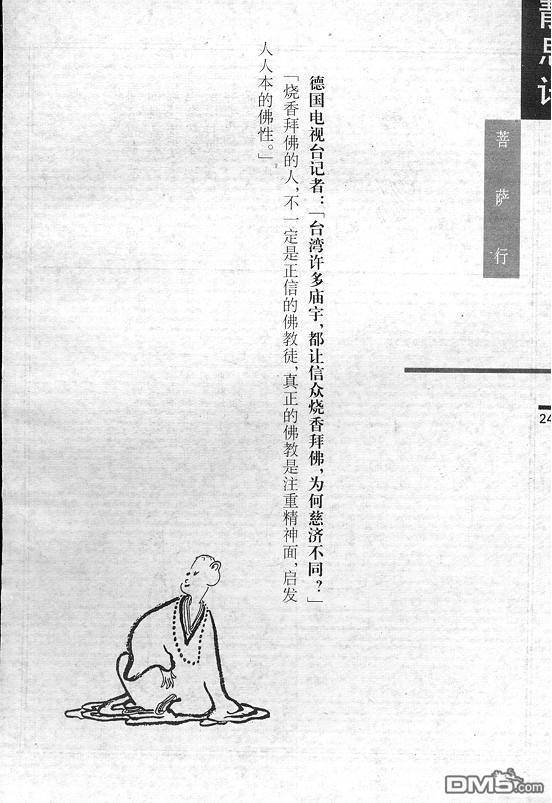 静思语
菩萨行
24
德国电视台记者：「台湾许多庙宇，都让信众烧香拜佛，为何慈济不同？」
「烧香拜佛的人，不一定是正信的佛教徒，真正的佛教是注重精神面，启发
人人本的佛性。」
DM5.com